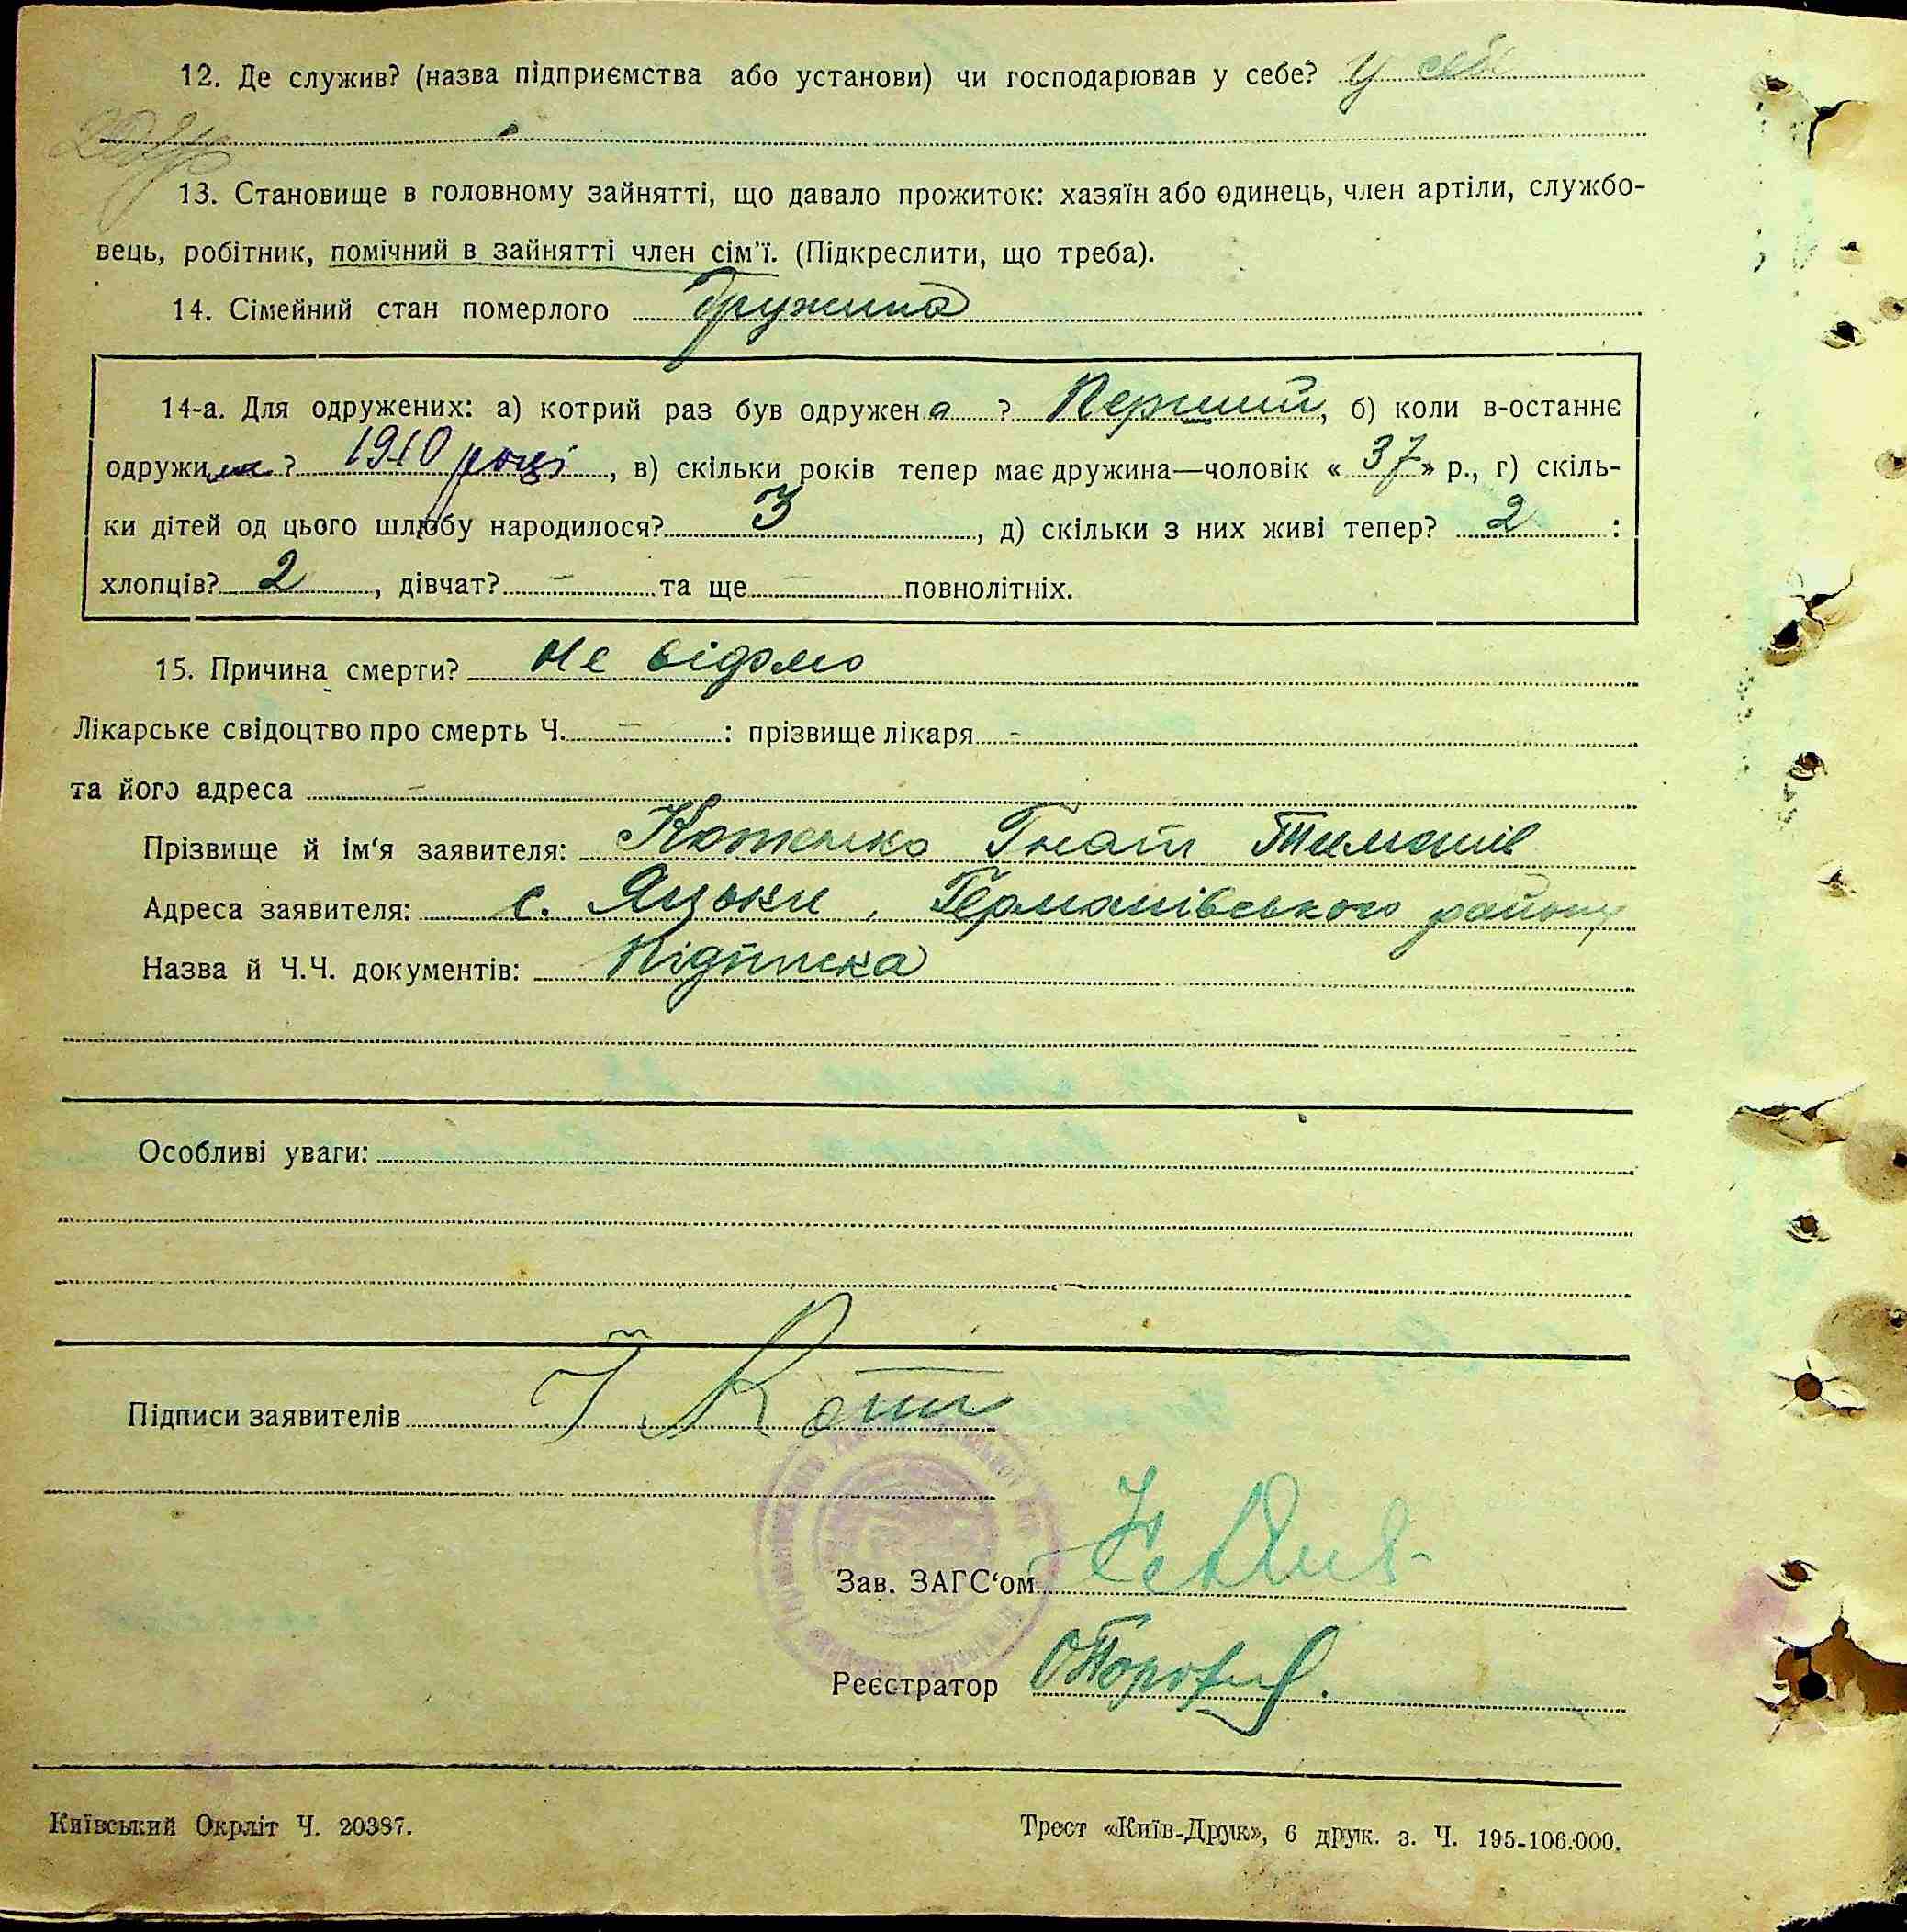 12. Де служив? (назва підприємства або установи) чи господарював у себе? у себе
13. Становище в головному зайнятті, що давало прожиток: хазяїн або одинець, член артіли, службо-
вець, робітник, помічний в зайнятті член сім'ї. (Підкреслити, що треба).
14. Сімейний стан померлого дружина
14-а. Для одружених: а) котрий раз був одружена ? Перший, б) коли в-останнє
одружи ? 1910 році, в) скільки років тепер має дружина—чоловік « 37 » р., г) скіль-
ки дітей од цього шлюбу народилося? 3, д) скільки з них живі тепер? 2 :
хлопців? 2, дівчат? — та ще — повнолітніх.
15. Причина смерти? Не відомо
Лікарське свідоцтво про смерть Ч. — : прізвище лікаря -
та його адреса —
Прізвище й ім'я заявителя: Гнат
Адреса заявителя: с. Германівського району
Назва й Ч.Ч. документів: Підписка
Особливі уваги:
Підписи заявителів
Зав. ЗАГС'ом
Реєстратор
Київський Окрліт Ч. 20387.
Трест «Київ-Друк», 6 друк. з. Ч. 195-106.000.